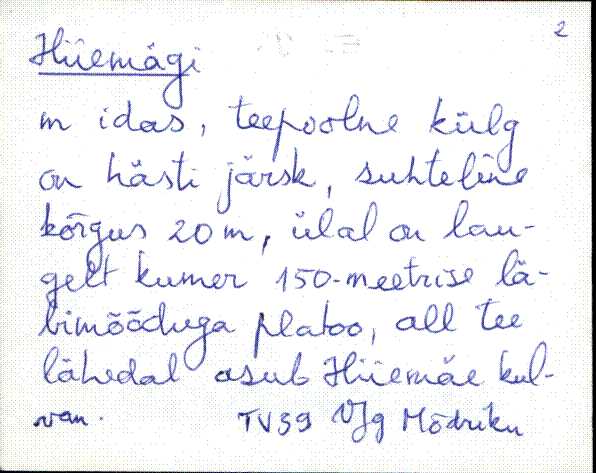 2
Hiiemägi
m idas, teepoolne külg
on hästi järsk, suhteline
kõrgus 20 m, ülal on lau-
gelt kumer 150-meetrise lä-
bimõõduga platoo, all tee
lähedal asub Hiiemäe kul-
van. TV39 VJg Mõdriku